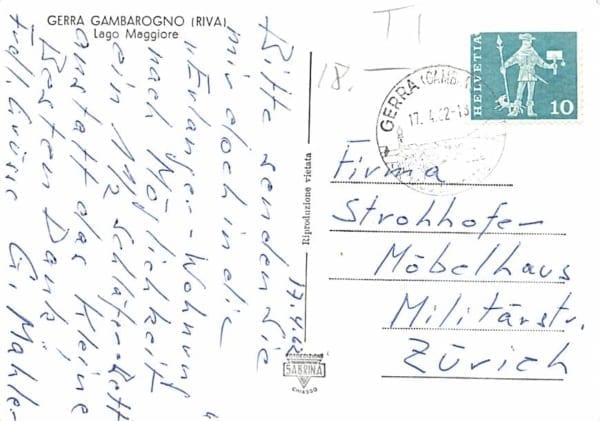 GERRA GAMBAROGNO (RIVA)
Lago Maggiore
17.4.62
Bitte senden Sie
mir doch in die
"Erlanger-Wohnung"
nach Möglichkeit
ein 1 1/2 schläfer-Bett
anstatt das kleine
Besten Dank,
frdl. Grüsse
G. Mahle-
Riproduzione vietata
FOTOEDIZIONE
SABRINA
CHIASSO
T1
18.
HELVETIA
10
GERRA (GAMB
17.4.62-18
Firma
Strohhofer-
Möbelhaus
Militärstr.
Zürich